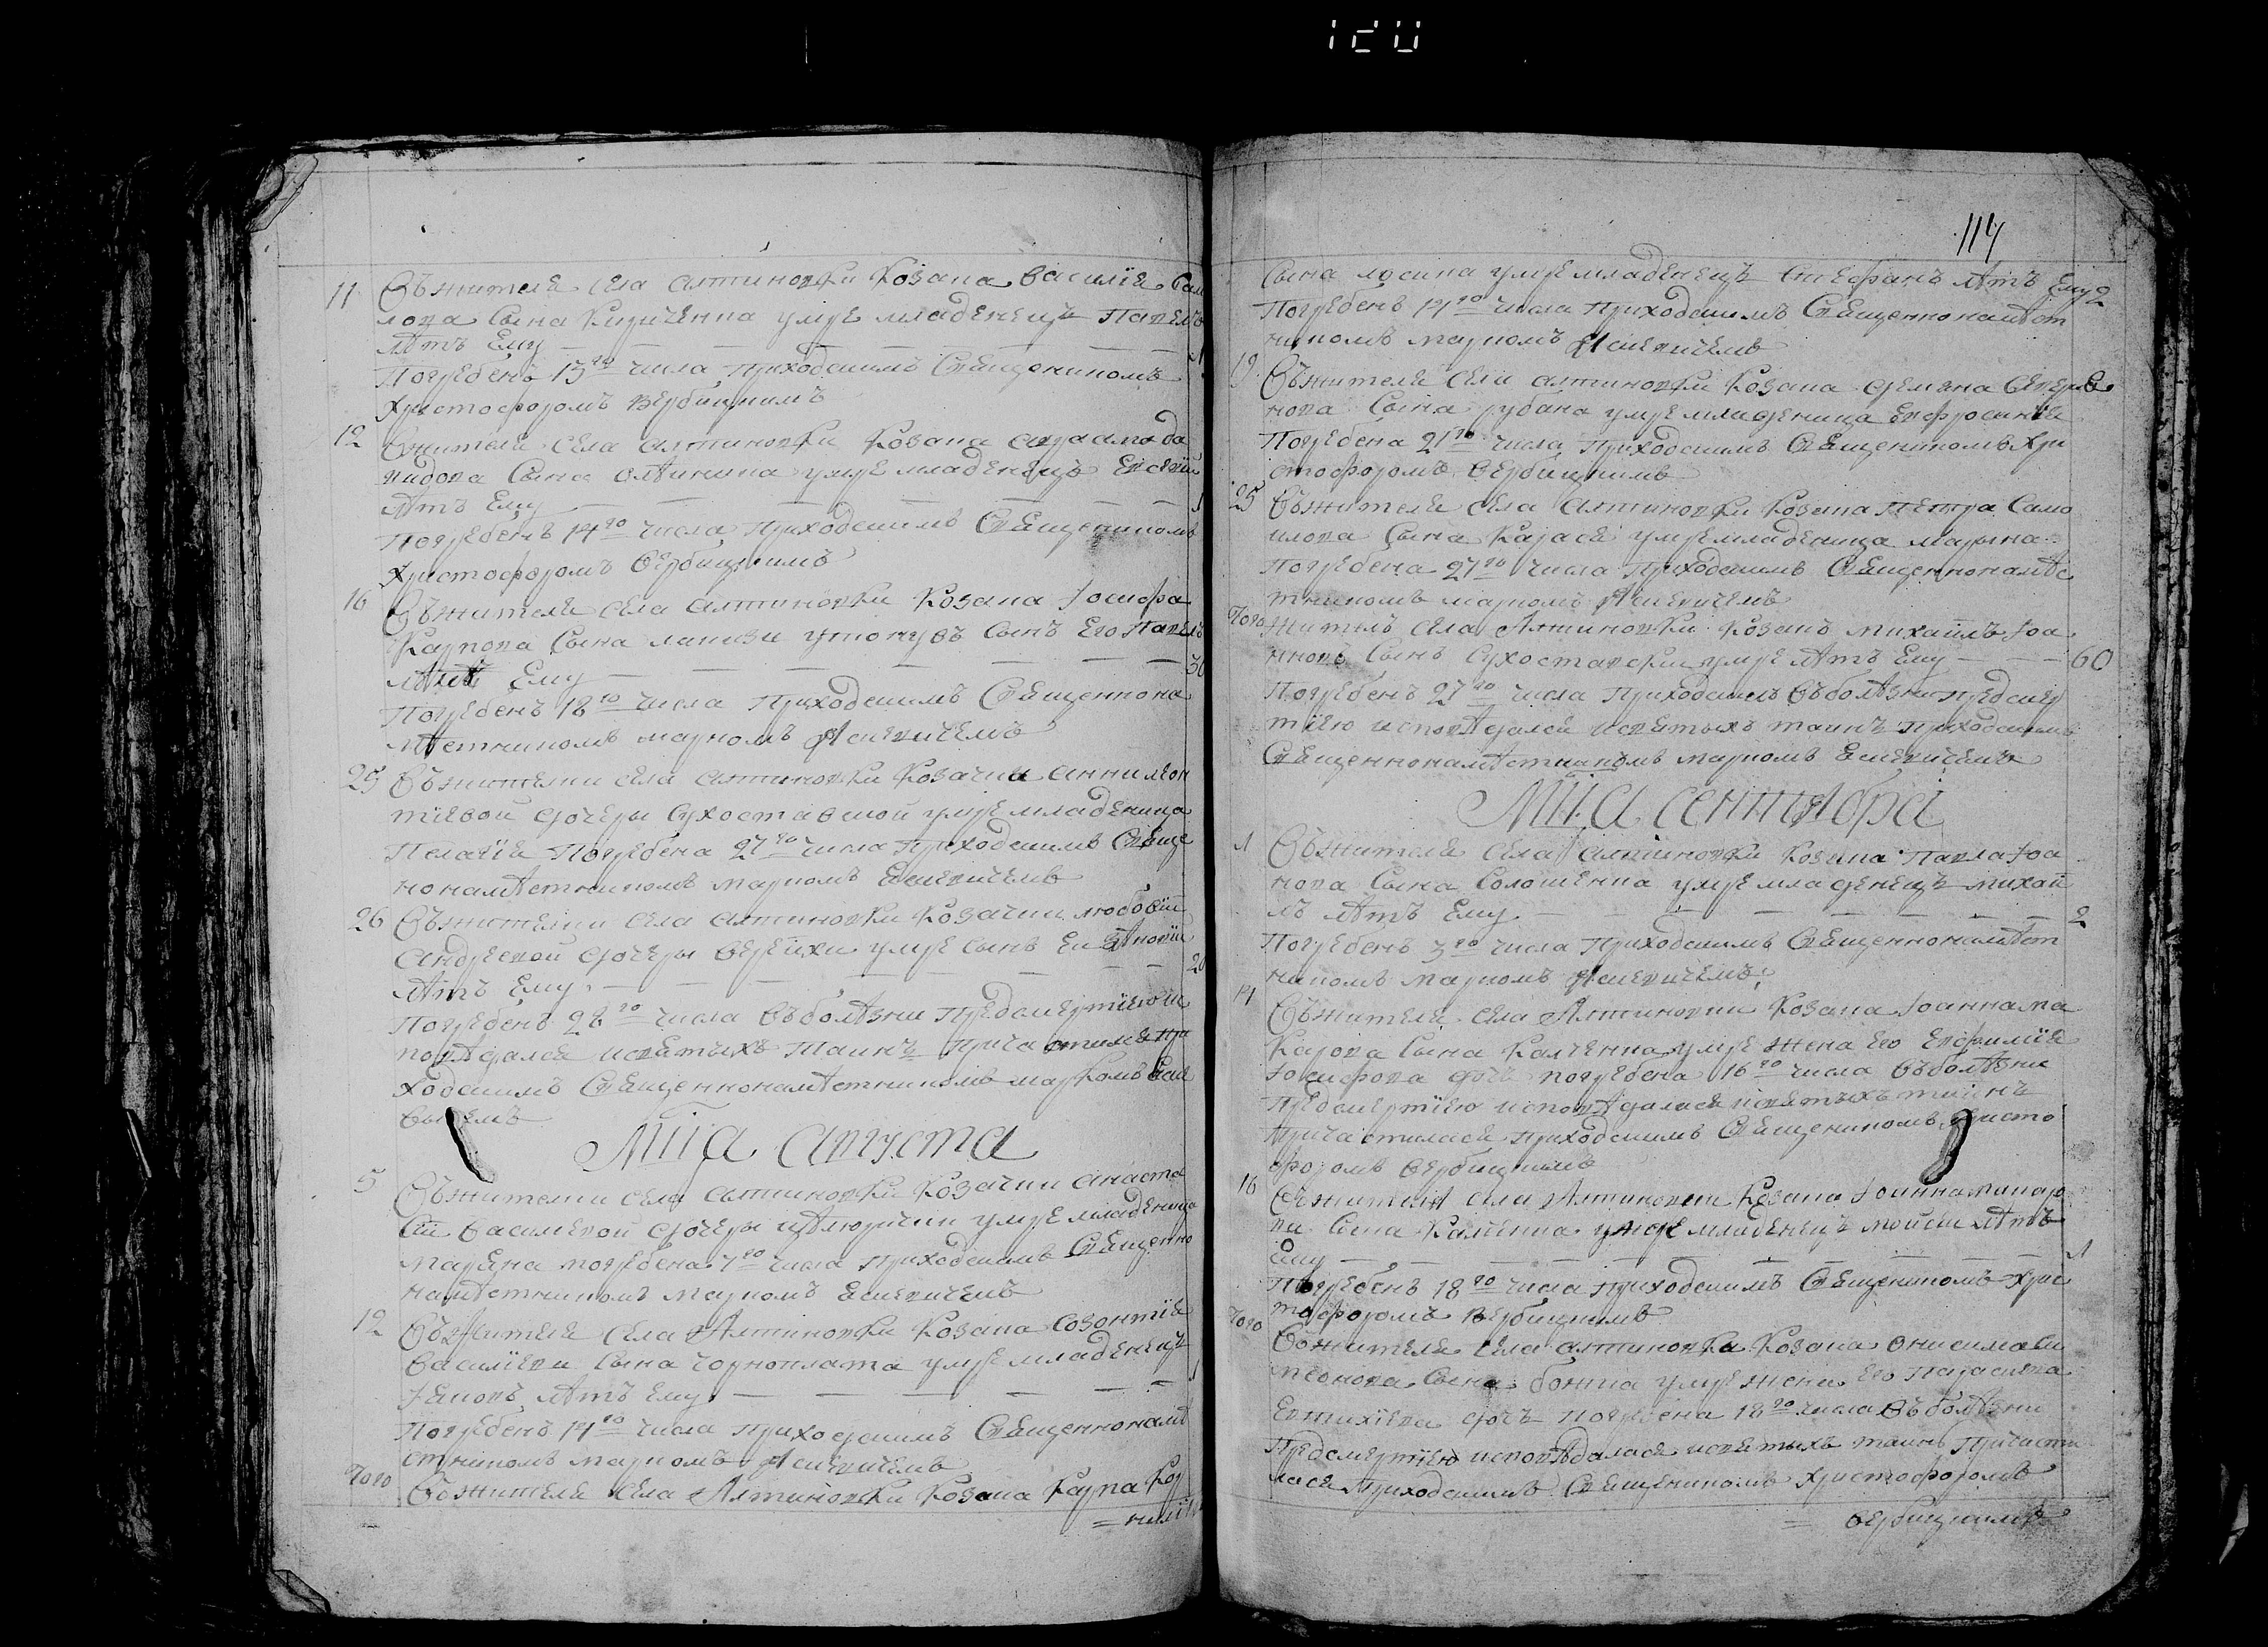 114
11 Въжителя села алтиновки козака василїя сам
лова сына Кириченка умре младенецъ Павелъ
лѣтъ Ему — 1
Погребенъ 13го числа Приходскимъ Священникомъ
Христофоромъ вербицкимъ
12 Вжителя села алтиновки козака
сына умре младенецъ Евсѣй
лѣтъ Ему — 1
Погребенъ 14го числа Приходскимъ Священникомъ
Христофоромъ Вербицкимъ
16 Въжителя села алтиновки козака Iосифа
Карпова сына утонувъ сынъ Его Павелъ
лѣтъ Ему — 30
Погребенъ 18го числа Приходскимъ Священнона
мѣстникомъ маркомъ
25 Въжителки села алтиновки козачки анни леон
тїевой дочеры Сухоставской умре младеница
Пелагїя Погребена 27го числа Приходскимъ Свяще
нонамѣстникомъ маркомъ
26 Въжителки села алтиновки козачки любовїи
андреевой дочеры умре сынъ Ея
лѣтъ Ему — 20
Погребенъ 28го числа Въболѣзни Предсмертїемъ и
повѣдался исвятыхъ Таинъ Причастился при
ходскимъ Священнонамѣстникомъ маркомъ

Мца августа
5 Въжителки села алтиновки козачки анаста
сїи васильевой дочеры умре младеница
Марина погребена 7го числа приходскимъ Священно
намѣстникомъ маркомъ
12 Въжителя села Алтиновки козака Созонтїя
Василїева сына умре младенецъ
Iяковъ лѣтъ Ему — 1
Погребенъ 14го числа приходскимъ Священнонамѣ
стникомъ маркомъ
Того Вожителя села Алтиновки козака Карпа Кор
= нилїя
сына умре младенецъ Стефанъ лѣтъ Ему 2
Погребенъ 14го числа Приходскимъ Священнонамѣст
никомъ маркомъ
19 Въжителя села алтиновки козака демяна
нова сына рубана умре младеница Евфросинїя
Погребена 21го числа Приходскимъ Священникомъ Хри
стофоромъ Вербицкимъ
25 Въжителя села алтиновки козака петра Само
илова сына Карася умре младеница марина
Погребена 27го числа Приходскимъ Священнонамѣс
тникомъ маркомъ
Того Житель села Алтиновки козакъ михаилъ Iоа
нновъ сынъ Сухоставски умре лѣтъ Ему — 60
Погребенъ 27го числа Приходскимъ Въболѣзни предсмер
тїею исповѣдался исвятыхъ таинъ приходскимъ
Священнонамѣстникомъ маркомъ
Мца сентября
1 Въжителя села алтиновки козака павла Iоа
нова сына Солошенка умре младенецъ михаи
лъ лѣтъ Ему — 2
Погребенъ 3го числа Приходскимъ Священнонамѣст
никомъ маркомъ
14 Въжителя села Алтиновки козака Iоанна ма
карова сына умре жена Его Евфимїя
Iосифова дочь погребена 16го числа Въболѣзни
предсмертїею исповѣдалася исвятыхъ таинъ
причастилася приходскимъ Священникомъ Христо
форомъ вербицкимъ
16 Въжителя села Алтиновки козака Iоанна макаро
ва сына умре младенецъ мойсей лѣтъ
Ему — 1
Погребенъ 18го числа приходскимъ Священникомъ Хрис
тофоромъ вербицкимъ
Того Вожителя села алтиновки козака Онисима си
меонова сына умре жена Его Параскева
Евтихїева дочь Погребена 18го числа Въболѣзни
Предсмертїею исповѣдалася исвятыхъ таинъ Причасти
лася приходскимъ Священникомъ Христофоромъ
= вербицкимъ